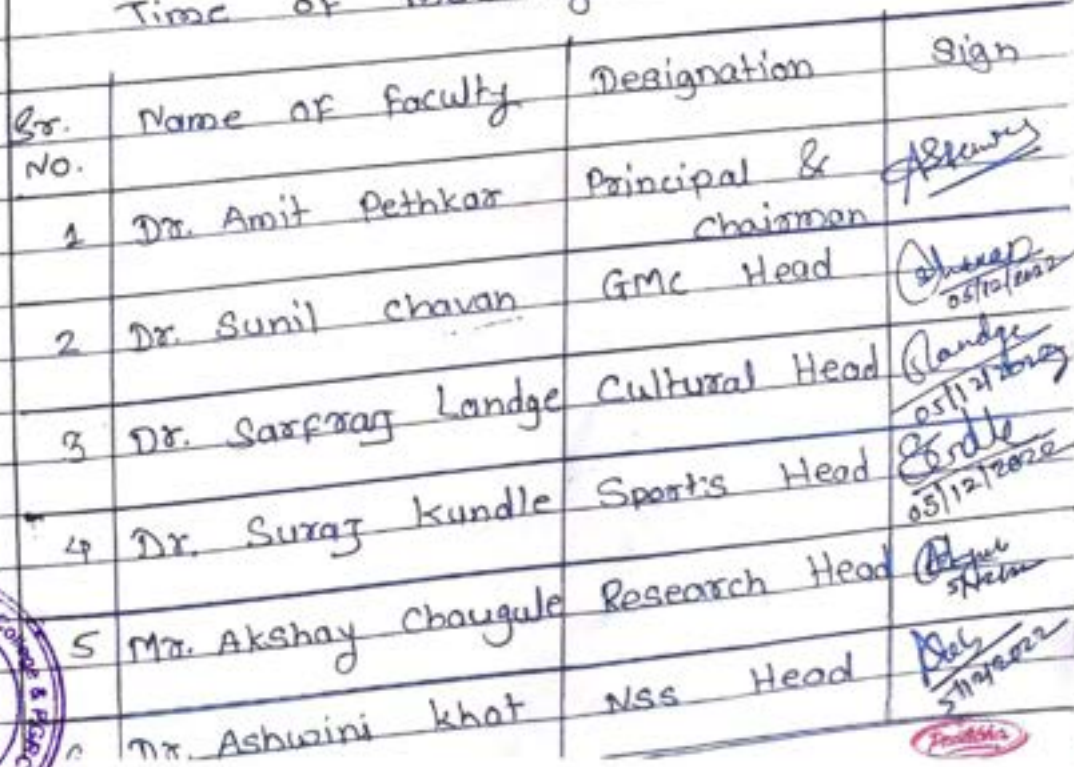 Time of
Sr. No. Name of Faculty Designation Sign
1 Dr. Amit Pethkar Principal & Chairman
2 Dr. Sunil Chavan GMC Head 05/12/2022
3 Dr. Sarfraz Landge Cultural Head Landge 05/12/2022
4 Dr. Suraj Kundle Sports Head 05/12/2022
5 Mr. Akshay Chaugule Research Head
Dr. Ashwini Khot NSS Head 5/12/2022